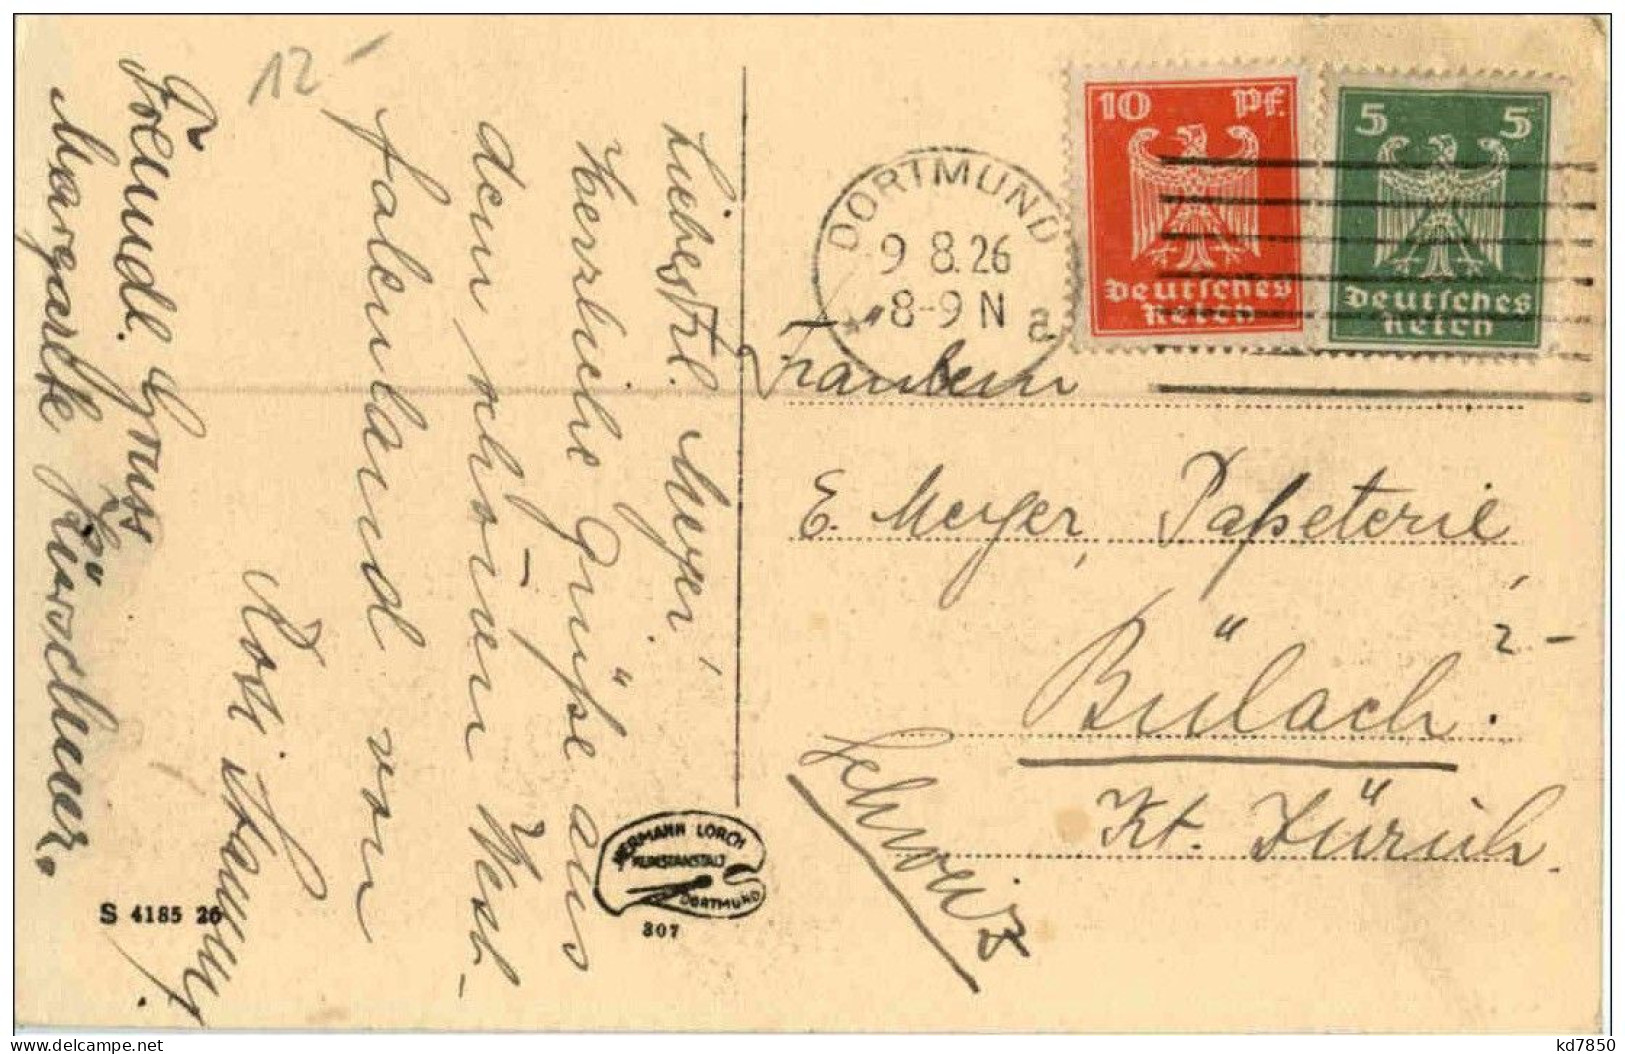 12-
Liebes Frl. Meyer!
Herzliche Grüße aus
dem schönen West-
falenland von
Rösi
Freundl. Gruss
Margarete
DORTMUND
9 8.26
8-9 N
a
10 Pf.
Deutsches
Reich
5 5
Deutsches
Reich
Fräulein
E. Meyer, Papeterie,
Bülach.
2-
Kt. Zürich.
Schweiz
HERMANN LORCH
KUNSTANSTALT
DORTMUND
307
S 4185 26
delcampe.net
kd7850